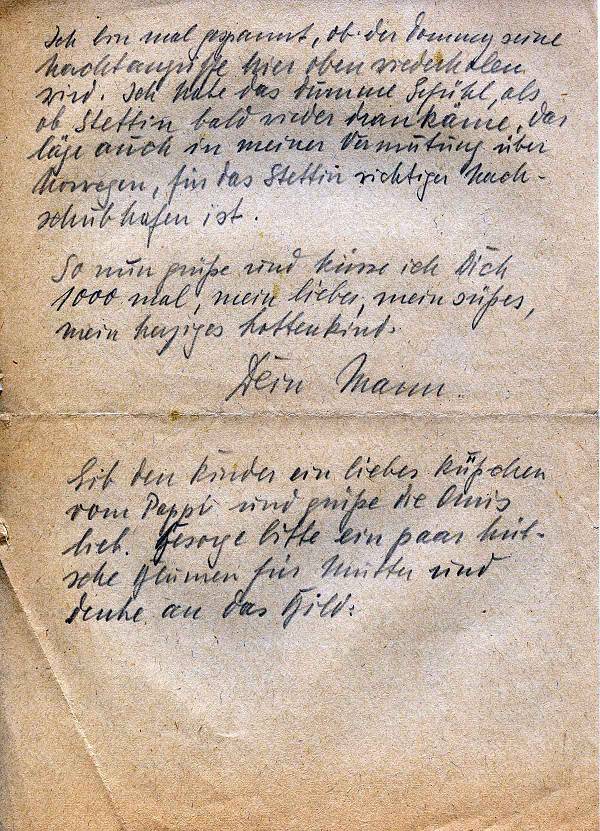 Ich bin mal gespannt, ob der Tommy seine
Nachtangriffe hier oben wiederholen
wird. Ich habe das dumme Gefühl, als
ob Stettin bald wieder dran käme, das
läge auch in meiner Vermutung über
Norwegen, für das Stettin richtiger Nach-
schubhafen ist.
So nun grüße und küsse ich Dich
1000 mal, mein liebes, mein süßes,
mein herziges
Dein Mann.
Gib den Kinder ein liebes Küßchen
vom Pappi und grüße die Omis
lieb. Besorge bitte ein paar hüb-
sche Blumen für Mutter und
denke an das Bild.